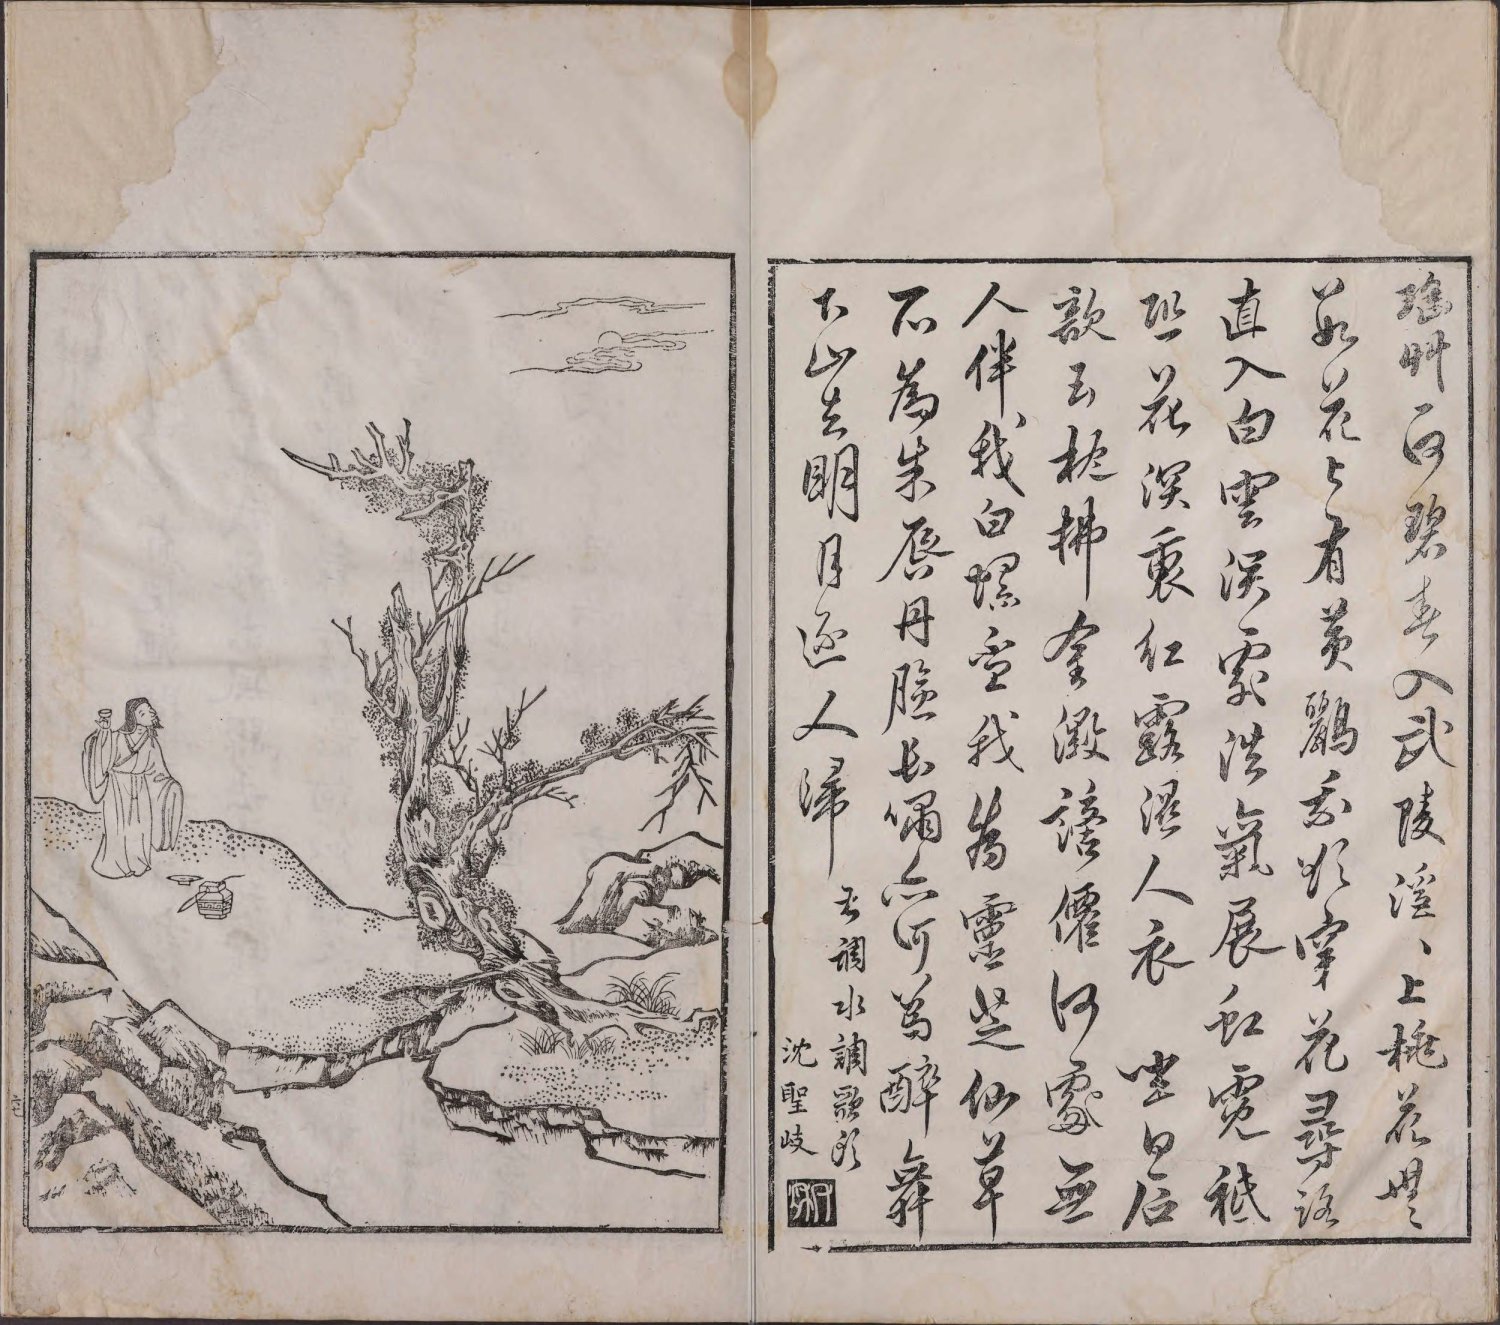 瑤艸一何碧春入武陵溪、上桃花無
數花上有黃鸝我欲穿花尋路
直入白雲深處浩氣展虹霓祗
恐花深裏紅露濕人衣 坐白石
欹玉枕拂金徽謫僊何處無
人伴我白螺盃我為靈芝仙草
不為朱唇丹臉長嘯亦何為醉舞
下山去明月逐人歸 右調水調歌頭
沈聖岐